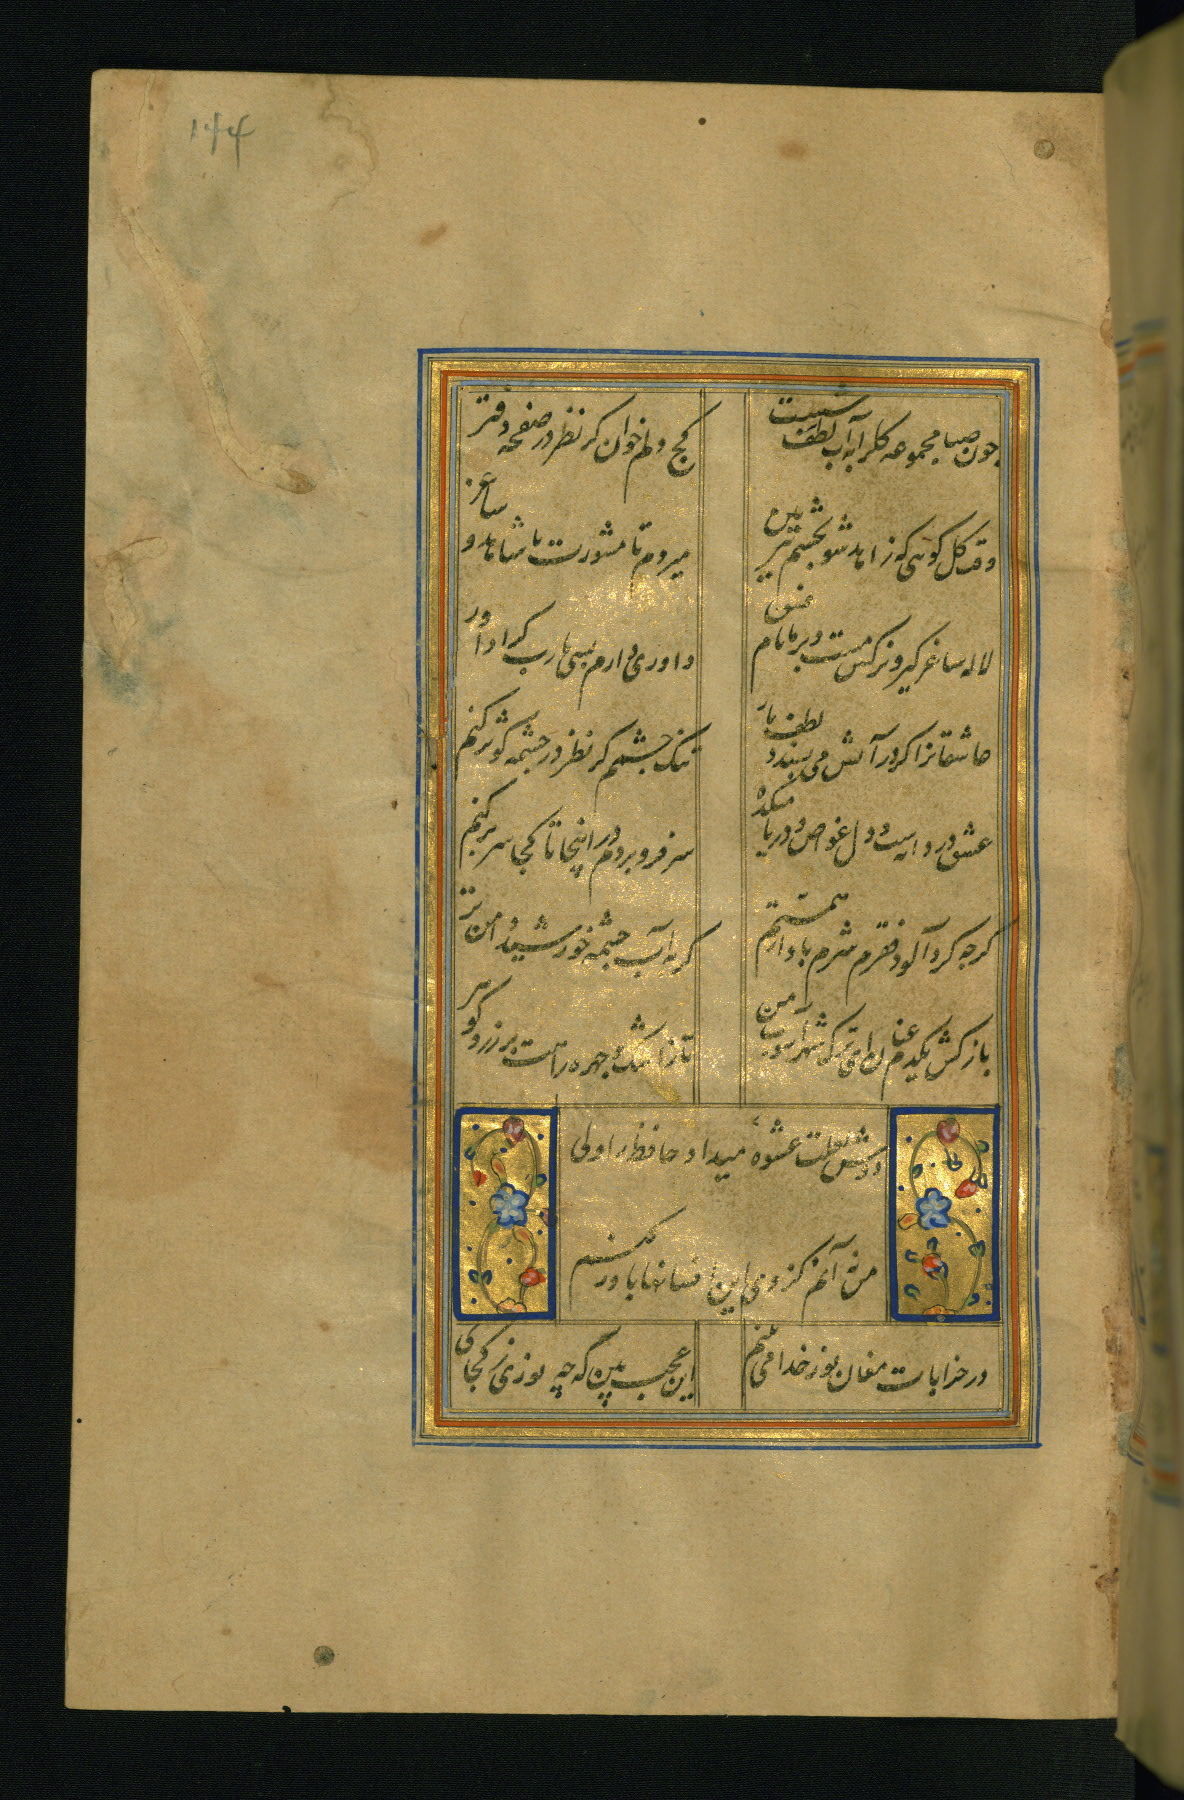 ۱۴۴
چون صبا مجموعه کل را به آب لطف شست
کج دلم خوان کر نظر در صفحه دفتر
وقت کل کویی که زاهد شو بچشم
میروم تا مشورت با شاهد و ساغر
لاله ساغر کیر و نرکس مست و بر ما نام فسق
داوری دارم بسی یارب کرا داور
عاشقانرا کر در آتش می پسندد لطف یار
تنک چشمم کر نظر در چشمه کوثر کنم
عشق در دانه است و دل غواص و دریا میکده
سر فرو بردم در اینجا تا کجا سر بر کنم
کرچه کرد آلود فقرم شرم باد از همتم
کر به آب چشمه خورشید دامن تر
باز کش یکدم عنان ای ترک شهر اشوب من
تا ز اشک و چهره راهت پر زر و کوهر
دوش لعلت عشوه میداد حافظ را ولی
من نه آنم کز وی این افسانها باور کنم
در خرابات مغان نور خدا می بینم
این عجب بین که چه نوری ز کجا می